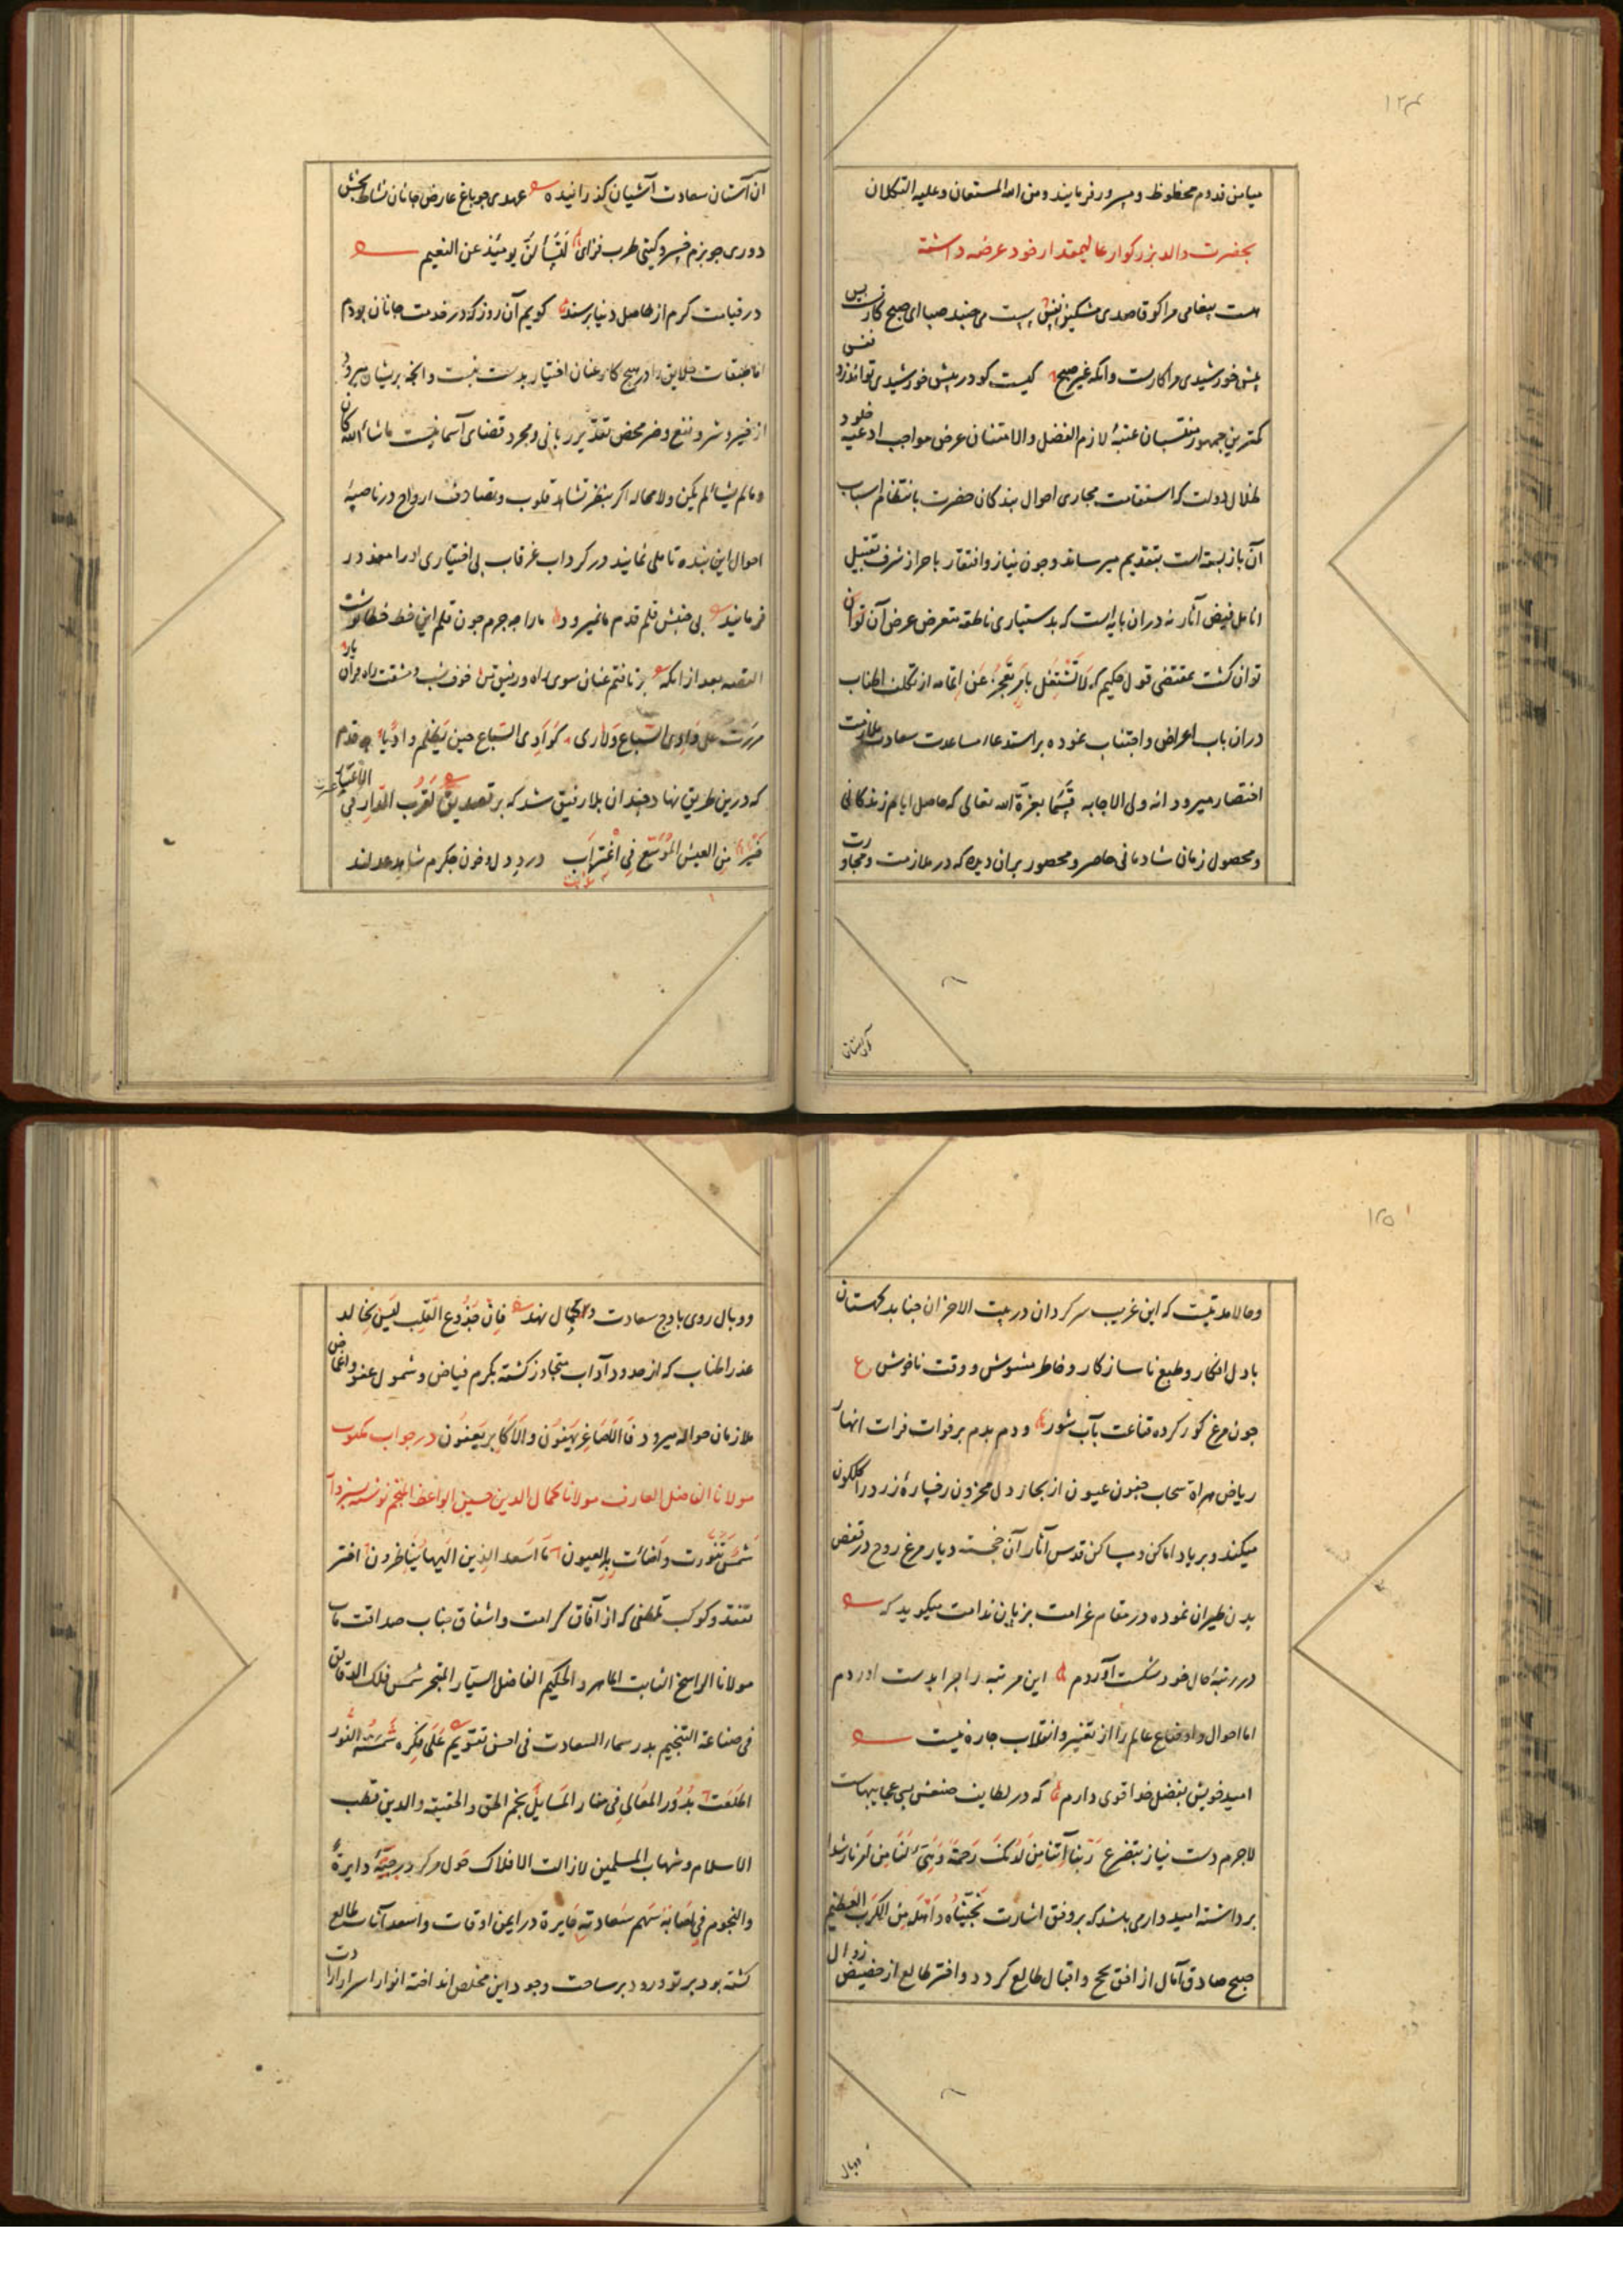 ۱۲۴
میامن قدوم محظوظ و مسرور فرمایند ومن الله المستعان وعلیه التکلان
بحضرت والد بزرگوار عالیمقدار خود عرضه داشته
هست پیغامی مرا کو قاصدی مشکین نفس نیست می جنبد صبا ای صبح کار تست بس
پیش خورشیدی مرا کارست وانکه غیر صبح کیست کو در پیش خورشیدی تواند زد نفس
کمترین جمهور منتسبان عتبهٔ لازم الفضل والامتنان عرض مواجب ادعیهٔ خلود
ظلال دولت که استقامت مجاری احوال بندکان حضرت بانتظام اسباب
آن باز بسته است بتقدیم میرساند وچون نیاز وافتقار باحراز شرف تقبیل
انامل فیض آثار نه دران پایه است که بدستیاری ناطقه متعرض عرض آن توان
توان کشت بمقتضی قول حکیم که لا تشتغل بامر تعجز عن اتمامه از تکلف اطناب
دران باب اعراض واجتناب نموده بر استدعاء مساعدت سعادت ملازمت
اختصار میرود انه ولی الاجابه قسما بعزة الله تعالی که حاصل ایام زندکانی
ومحصول زمان شادمانی حاصر ومحصور بران دیده که در ملازمت ومجاورت
آن آستان سعادت آشیان کذرانیده عهدی چو باغ عارض جانان نشاط بخش
دوری چو بزم خسرو کیتی طرب فزای لتسألن یومئذ عن النعیم
در قیامت کرم از حاصل دنیا پرسند کویم آن روز که در خدمت جانان بودم
اما طبقات خلایق را در هیچ کار عنان اختیار بدست نیست وانچه بریشان میرود
از خیر وشر ونفع وضر محض تقدیر ربانی ومجرد قضای آسمانیست ما شاء الله کان
وما لم یشأ لم یکن ولا محاله اکر بنظر تشاهد قلوب وتصادف ارواح در ناصیهٔ
احوال این بنده تاملی نمایند در کرداب غرقاب بی اختیاری اورا معذور
فرمایند بی جنبش قلم قدم ما نمیرود ما را چه جرم چون قلم این خط خطا نوشت
القصه بعد از انکه برتافتم عنان سوی راه ورفیق من خوف شب ومشقت راه وران بار
مررت علی وادی السباع ولا اری کوادی السباع حین یظلم وادیا قدم
که درین طریق نهاد چندان بلا رفیق شد که بر تصدیق لقرب الدار فی الاقتار
خیر من العیش الموسع فی اغتراب درد دل وخون جکرم شاهد عدلند
کان آستان
۱۲۵
وحالا مدتیست که این غریب سرکردان در بیت الاحزان جنابد کهستان
با دل افکار وطبع ناسازکار وخاطر مشوش ووقت ناخوش ع
چون مرغ کور کرده قناعت بآب شور ودم بدم بر فوات فرات انهار
ریاض هراة سحاب جفون عیون از بحار دل محزون رخسارهٔ زرد را کلکون
میکند وبر یاد اماکن ومساکن قدس آثار آن خجسته دیار مرغ روح در قفص
بدن طیران نموده در مقام غرامت بزبان ندامت میکوید که
در رتبهٔ حال خود شکست آوردم این مرتبه را چرا بدست اوردم
اما احوال واوضاع عالم را از تغییر وانقلاب چاره نیست
امید خویش بفضل خدا قوی دارم که در لطایف صنعش بسی عجایبهاست
لاجرم دست نیاز بتضرع ربنا آتنا من لدنک رحمة وهیئ لنا من امرنا رشدا
برداشته امیدوار می باشد که بر وفق اشارت نجیناه واهله من الکرب العظیم
صبح صادق آمال از افق نجح واقبال طالع کردد واختر طالع از حضیض زوال
ووبال روی باوج سعادت وکمال نهد فان جذوع القلب لیس بخالد
عذر اطناب که از حدود آداب متجاوز کشته بکرم فیاض وشمول عفو واغماض
ملازمان حواله میرود فالاصاغر یهفون والاکابر یعفون در جواب مکتوب
مولانا الفاضل العارف مولانا کمال الدین حسین الواعظ المنجم نوشته
شمس تنورت واضائت بها العیون ما اسعد الذین الیها یناظرون اختر
تفقد وکوکب تلطفی که از آفاق کرامت واشفاق جناب صداقت مآب
مولانا الراسخ الثابت الماهر والحکیم الفاضل السیار المتبحر شمس فلک الدقایق
فی صناعة التنجیم بدر سماء السعادت فی احسن تقویم علی فکره شمسه النور
اطلعت بدور المعالی فی المسایل نجم الحق والحقیقه والدین قطب
الاسلام وشهاب المسلمین لا زالت الافلاک حول مرکز درجته دایرة
والنجوم فی اصابة سهم سعادته غایرة در ایمن اوقات واسعد آنات طالع
کشته بود پرتو ورود بر ساحت وجود این مخلص انداخته انوار اسرار
ووبال